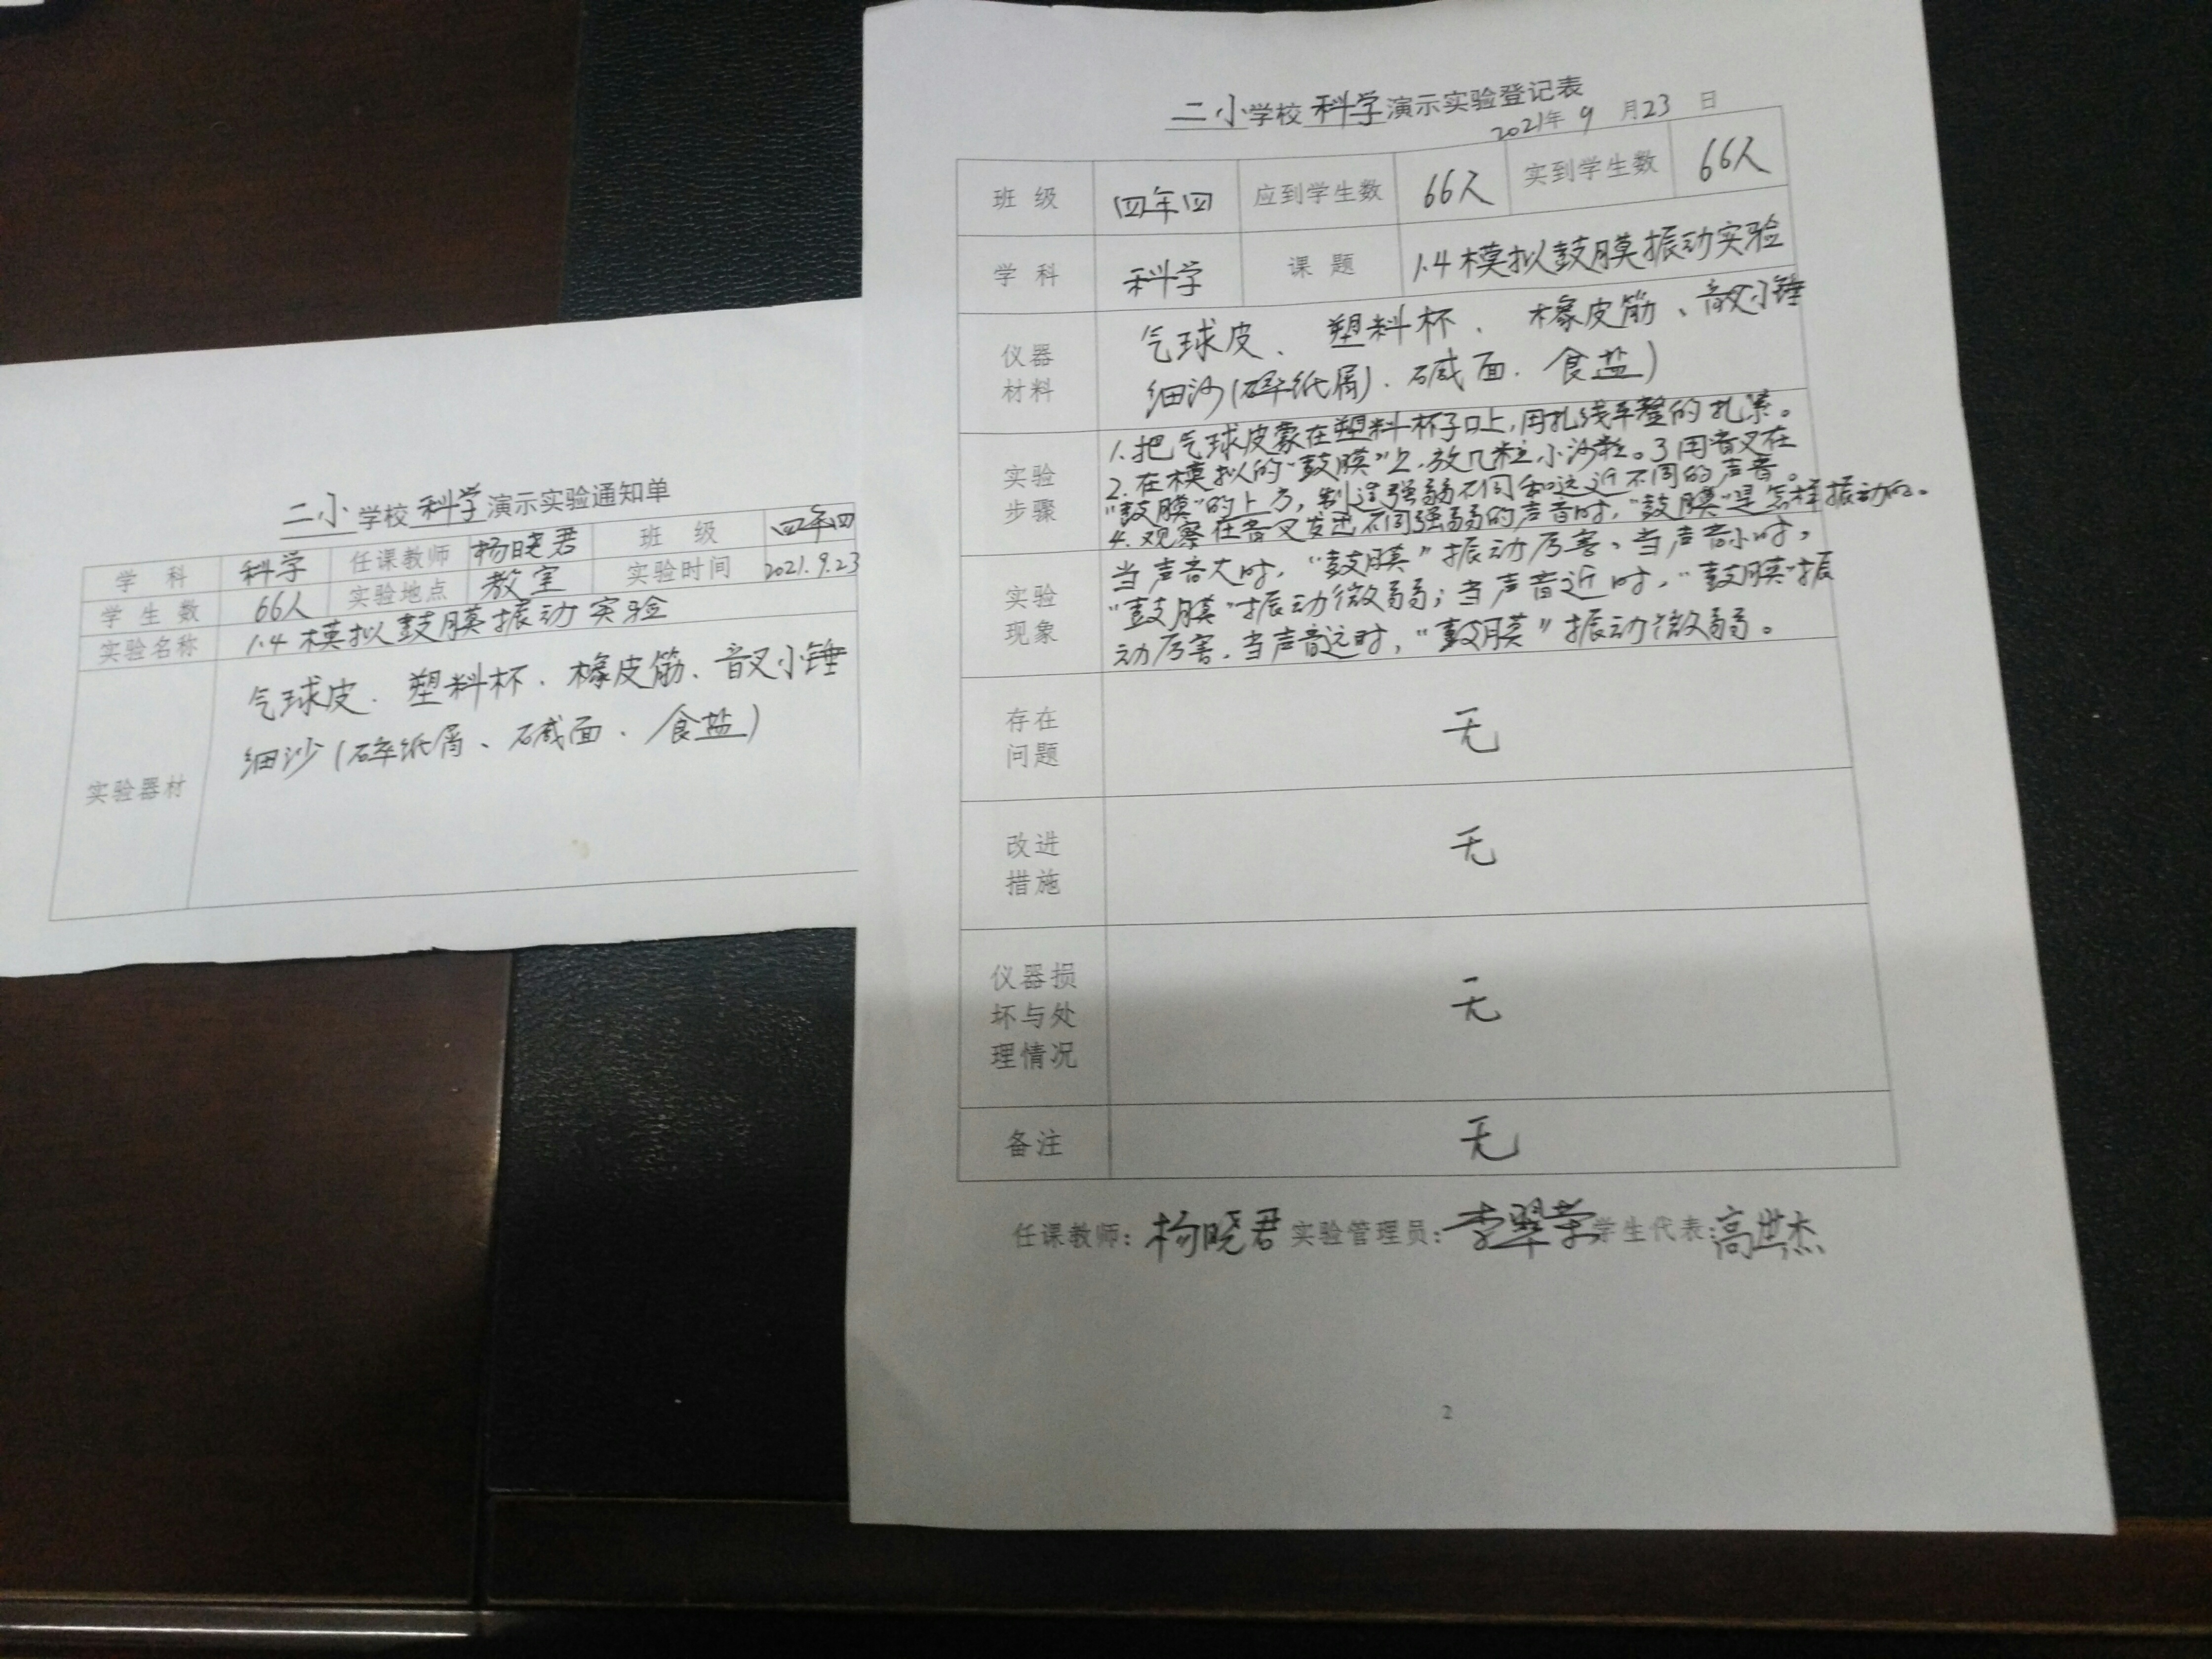 二小学校科学演示实验通知单
学 科 科学 任课教师 杨晓君 班 级 四年四
学生数 66人 实验地点 教室 实验时间 2021.9.23
实验名称 1.4模拟鼓膜振动实验
实验器材 气球皮、塑料杯、橡皮筋、音叉小锤
细沙(碎纸屑、碱面、食盐)
二小学校科学演示实验登记表
2021年9月23日
班 级 四年四 应到学生数 66人 实到学生数 66人
学 科 科学 课 题 1.4模拟鼓膜振动实验
仪器
材料
气球皮、塑料杯、橡皮筋、音叉小锤
细沙(碎纸屑)、碱面、食盐)
实验
步骤
1.把气球皮蒙在塑料杯子口上,用扎线平整的扎紧。
2.在模拟的“鼓膜”上,放几粒小沙粒。3用音叉在
“鼓膜”的上方,制造强弱不同和远近不同的声音。
4.观察在音叉发出不同强弱的声音时,“鼓膜”是怎样振动的。
实验
现象
当声音大时,“鼓膜”振动厉害,当声音小时,
“鼓膜”振动微弱;当声音近时,“鼓膜”振
动厉害,当声音远时,“鼓膜”振动微弱。
存在
问题
无
改进
措施
无
仪器损
坏与处
理情况
无
备注 无
任课教师:杨晓君 实验管理员:李翠荣 学生代表:高世杰
2